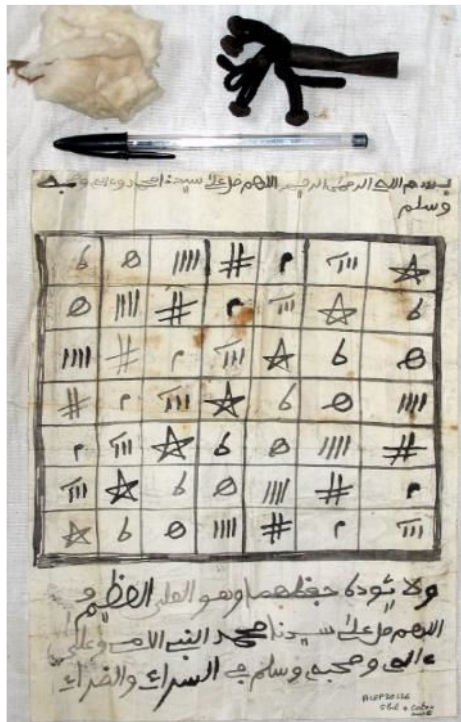 بسم الله الرحمن الرحيم اللهم صل على سيدنا محمد وءاله وصحبه
وسلم
ولا يئوده حفظهما وهو العلى العظيم
اللهم صل على سيدنا محمد النبى الامى وعلى
ءاله وصحبه وسلم في السراء والضراء